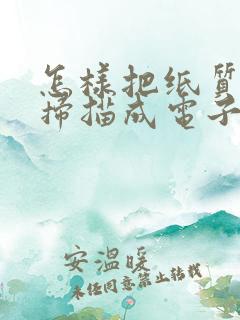 怎様把纸質
掃描成電子
安温暖
未经同意禁止转载